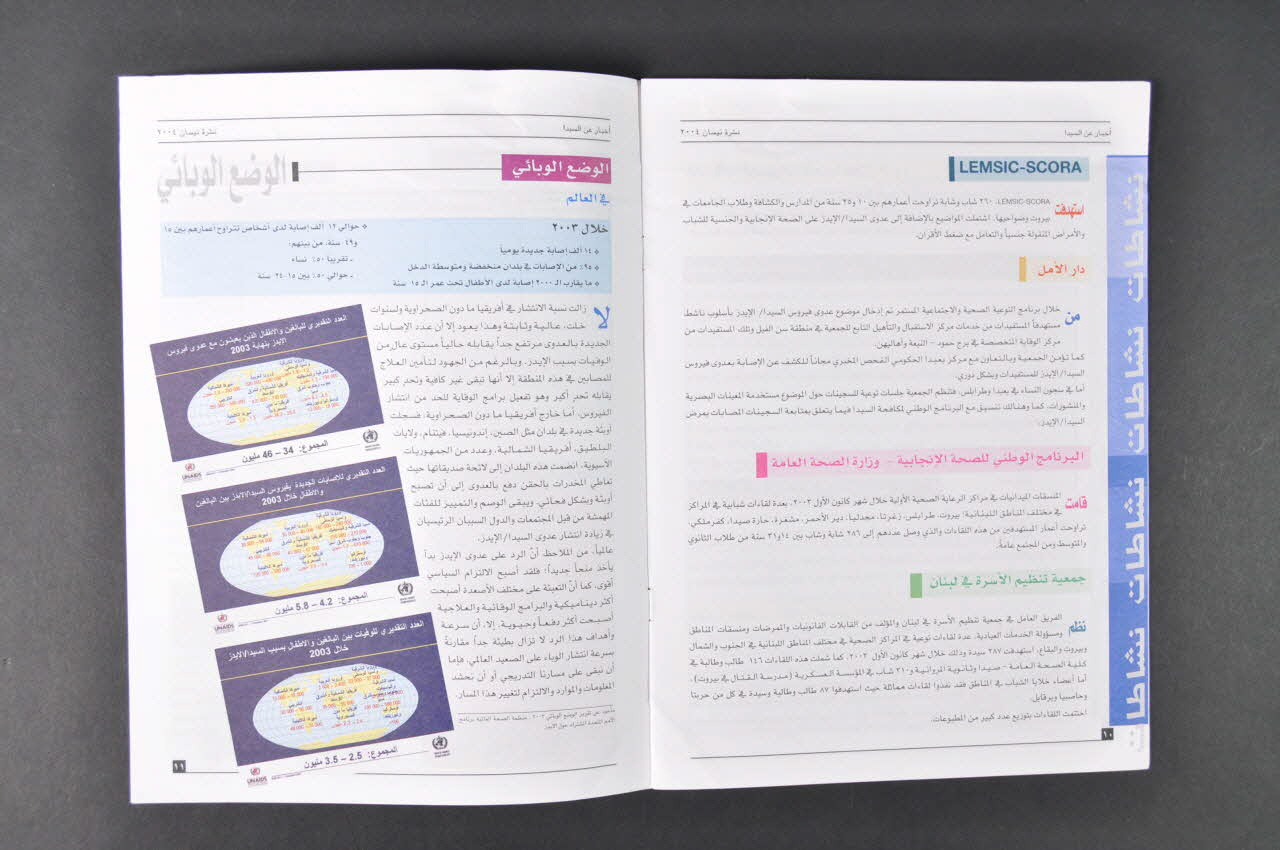 أخبار عن السيدا
نشرة نيسان ٢٠٠٤
نشاطات نشاطات نشاطات نشاطات
LEMSIC-SCORA
استهدفت LEMSIC-SCORA، ٢٦٠ شاب وشابة تراوحت أعمارهم بين ١٠ و٢٥ سنة من المدارس والكشافة وطلاب الجامعات في
بيروت وضواحيها. اشتملت المواضيع بالإضافة إلى عدوى السيدا/الإيدز على الصحة الإنجابية والجنسية للشباب
والأمراض المنقولة جنسياً والتعامل مع ضغط الأقران.
دار الأمل
من خلال برنامج التوعية الصحية والاجتماعية المستمر تم إدخال موضوع عدوى فيروس السيدا/ الإيدز بأسلوب ناشط،
مستهدفاً المستفيدات من خدمات مركز الاستقبال والتأهيل التابع للجمعية في منطقة سن الفيل وتلك المستفيدات من
مركز الوقاية المتخصصة في برج حمود - النبعة وأهاليهن.
كما تؤمن الجمعية وبالتعاون مع مركز بعبدا الحكومي الفحص المخبري مجاناً للكشف عن الإصابة بعدوى فيروس
السيدا/ الإيدز للمستفيدات وبشكل دوري.
أما في سجون النساء في بعبدا وطرابلس، فتنظم الجمعية جلسات توعية للسجينات حول الموضوع مستخدمة المعينات البصرية
والمنشورات. كما وهنالك تنسيق مع البرنامج الوطني لمكافحة السيدا فيما يتعلق بمتابعة السجينات المصابات بمرض
السيدا/ الإيدز.
البرنامج الوطني للصحة الإنجابية - وزارة الصحة العامة
قامت المنسقات الميدانيات في مراكز الرعاية الصحية الأولية خلال شهر كانون الأول ٢٠٠٣، بعدة لقاءات شبابية في المراكز
في مختلف المناطق اللبنانية: بيروت، طرابلس، زغرتا، مجدليا، دير الأحمر، مشغرة، حارة صيدا، كفرملكي.
تراوحت أعمار المستهدفين من هذه اللقاءات والذي وصل عددهم إلى ٢٨٦ شابة وشاب بين ١٤ و٣١ سنة من طلاب الثانوي
والمتوسط ومن المجتمع عامةً.
جمعية تنظيم الأسرة في لبنان
نظم الفريق العامل في جمعية تنظيم الأسرة في لبنان والمؤلف من القابلات القانونيات والممرضات ومنسقات المناطق
ومسؤولة الخدمات العيادية، عدة لقاءات توعية في المراكز الصحية في مختلف المناطق اللبنانية في الجنوب والشمال
وبيروت والبقاع، استهدفت ٢٨٧ سيدة وذلك خلال شهر كانون الأول ٢٠٠٣. كما شملت هذه اللقاءات ١٤٦ طالب وطالبة في
كلية الصحة العامة - صيدا وثانوية المروانية و٢١٠ شاب في المؤسسة العسكرية (مدرسة القتال في بيروت).
أما أعضاء خلايا الشباب في المناطق فقد نفذوا لقاءات مماثلة حيث استهدفوا ٨٧ طالب وطالبة وسيدة في كل من حربتا
وحاصبيا وبرقايل.
اختتمت اللقاءات بتوزيع عدد كبير من المطبوعات.
١٠
أخبار عن السيدا
نشرة نيسان ٢٠٠٤
الوضع الوبائي
الوضع الوبائي
في العالم
خلال ٢٠٠٣
١٤ ألف إصابة جديدة يومياً
٩٥٪ من الإصابات في بلدان منخفضة ومتوسطة الدخل
ما يقارب الـ ٢٠٠٠ إصابة لدى الأطفال تحت عمر الـ ١٥ سنة
حوالي ١٢ ألف إصابة لدى أشخاص تتراوح أعمارهم بين ١٥
و٤٩ سنة، من بينهم:
ـ تقريباً ٥٠٪ نساء
ـ حوالي ٥٠٪ بين ١٥-٢٤ سنة
لا زالت نسبة الانتشار في أفريقيا ما دون الصحراوية ولسنوات
خلت، عالية وثابتة وهذا يعود إلا أن عدد الإصابات
الجديدة بالعدوى مرتفع جداً يقابله حالياً مستوى عال من
الوفيات بسبب الإيدز. وبالرغم من الجهود لتأمين العلاج
للمصابين في هذه المنطقة إلا أنها تبقى غير كافية وتحد كبير
يقابله تحد أكبر وهو تفعيل برامج الوقاية للحد من انتشار
الفيروس. أما خارج أفريقيا ما دون الصحراوية، فسجلت
أوبئة جديدة في بلدان مثل الصين، إندونيسيا، فيتنام، ولايات
البلطيق، أفريقيا الشمالية، وعدد من الجمهوريات
الآسيوية. انضمت هذه البلدان إلى لائحة صديقاتها حيث
تعاطي المخدرات بالحقن دفع بالعدوى إلى أن تصبح
أوبئة وبشكل فجائي. ويبقى الوصم والتمييز للفئات
المهمشة من قبل المجتمعات والدول السببان الرئيسيان
في زيادة انتشار عدوى السيدا/ الإيدز.
عالمياً، من الملاحظ أنّ الرد على عدوى الإيدز بدأ
يأخذ منحاً جديداً؛ فلقد أصبح الالتزام السياسي
أقوى، كما أنّ التعبئة على مختلف الأصعدة أصبحت
أكثر ديناميكية والبرامج الوقائية والعلاجية
أصبحت أكثر دفعاً وحيوية. إلا، أن سرعة
وأهداف هذا الرد لا تزال بطيئة جداً مقارنة
بسرعة انتشار الوباء على الصعيد العالمي. فإما
أن نبقى على مسارنا التدريجي أو أن نحشد
المعلومات والموارد والالتزام لتغيير هذا المسار.
العدد التقديري للبالغين والاطفال الذين يعيشون مع عدوى فيروس
الايدز بنهاية 2003
المجموع: 34 – 46 مليون
UNAIDS
العدد التقديري للاصابات الجديدة بفيروس السيدا/الايدز بين البالغين
والاطفال خلال 2003
المجموع: 4.2 – 5.8 مليون
UNAIDS
العدد التقديري للوفيات بين البالغين والاطفال بسبب السيدا/الايدز
خلال 2003
المجموع: 2.5 – 3.5 مليون
UNAIDS
١١